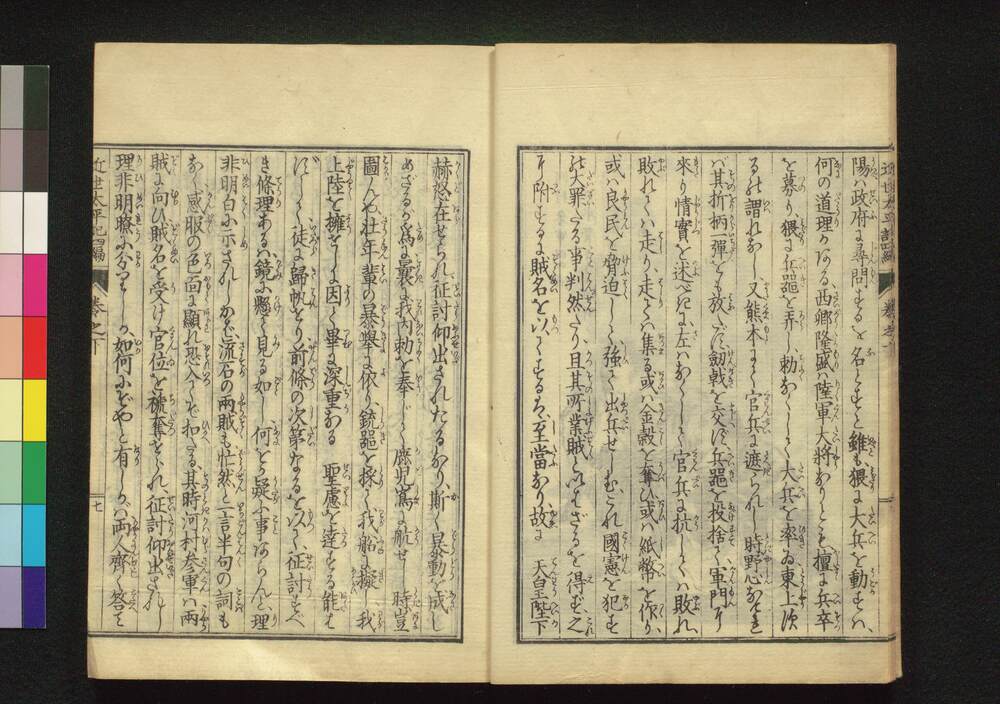 陽ハ政府に尋問するを名とすと雖も猥に大兵を動すハ、
何の道理かある、西郷隆盛ハ陸軍大将なりとも擅に兵卒
を募り猥に兵器を弄し勅なくして大兵を率ゐ東上須
る能謂れなし、又熊本にて官兵に遮られし時野心なき
バ其折柄一弾とも放ハず劔戟を交ず兵器を投捨て軍門に
來り情實を述べきに左ハなくして官兵に抗してハ敗れ、
敗れてハ走り、走てハ集る或ハ金穀を奪ひ或ハ紙幣を作り、
或ハ良民を脅迫して強て出兵せしむこれ國憲を犯す
能大罪たる事判然たり且其所業賊といはざるを得ず之
に附するに賊名を以てするは至當なり故に 天皇陛下
赫怒在せられ征討仰出されたるなり、斯く暴動を成し
めざるが為に曩に我内勅を奉じて鹿児嶌に航せし時豈
圖らんや壮年輩の暴擧に依り銃器を採て我船に擬し我
上陸を擁せしに因て畢に深重なる 聖慮を達する能は
ずして徒に歸帆せり前條の次第なるを以て征討すべ
き條理あるハ鏡に懸て見る如し何とか疑ふ事あらんと、理
非明白に示されしかば流石の兩賊も忙然と一言半句の詞も
なく感服の色面に顯れ恐入てぞ扣たる、其時河村参軍ハ兩
賊に向ひ賊名を受け官位を褫奪せられ征討仰出されし
理非明瞭に分りしか、如何にぞやと有しかバ両人齊く答て
近世太平記四編
巻之下
七